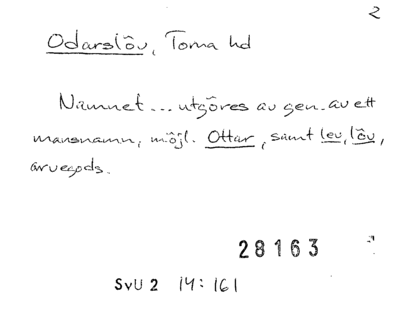 2
Odarslöv, Torna hd
Namnet... utgöres av gen. av ett
mansnamn, möjl. Ottar, samt lev, löv,
arvegods.
28163
SvU 2 14: 161